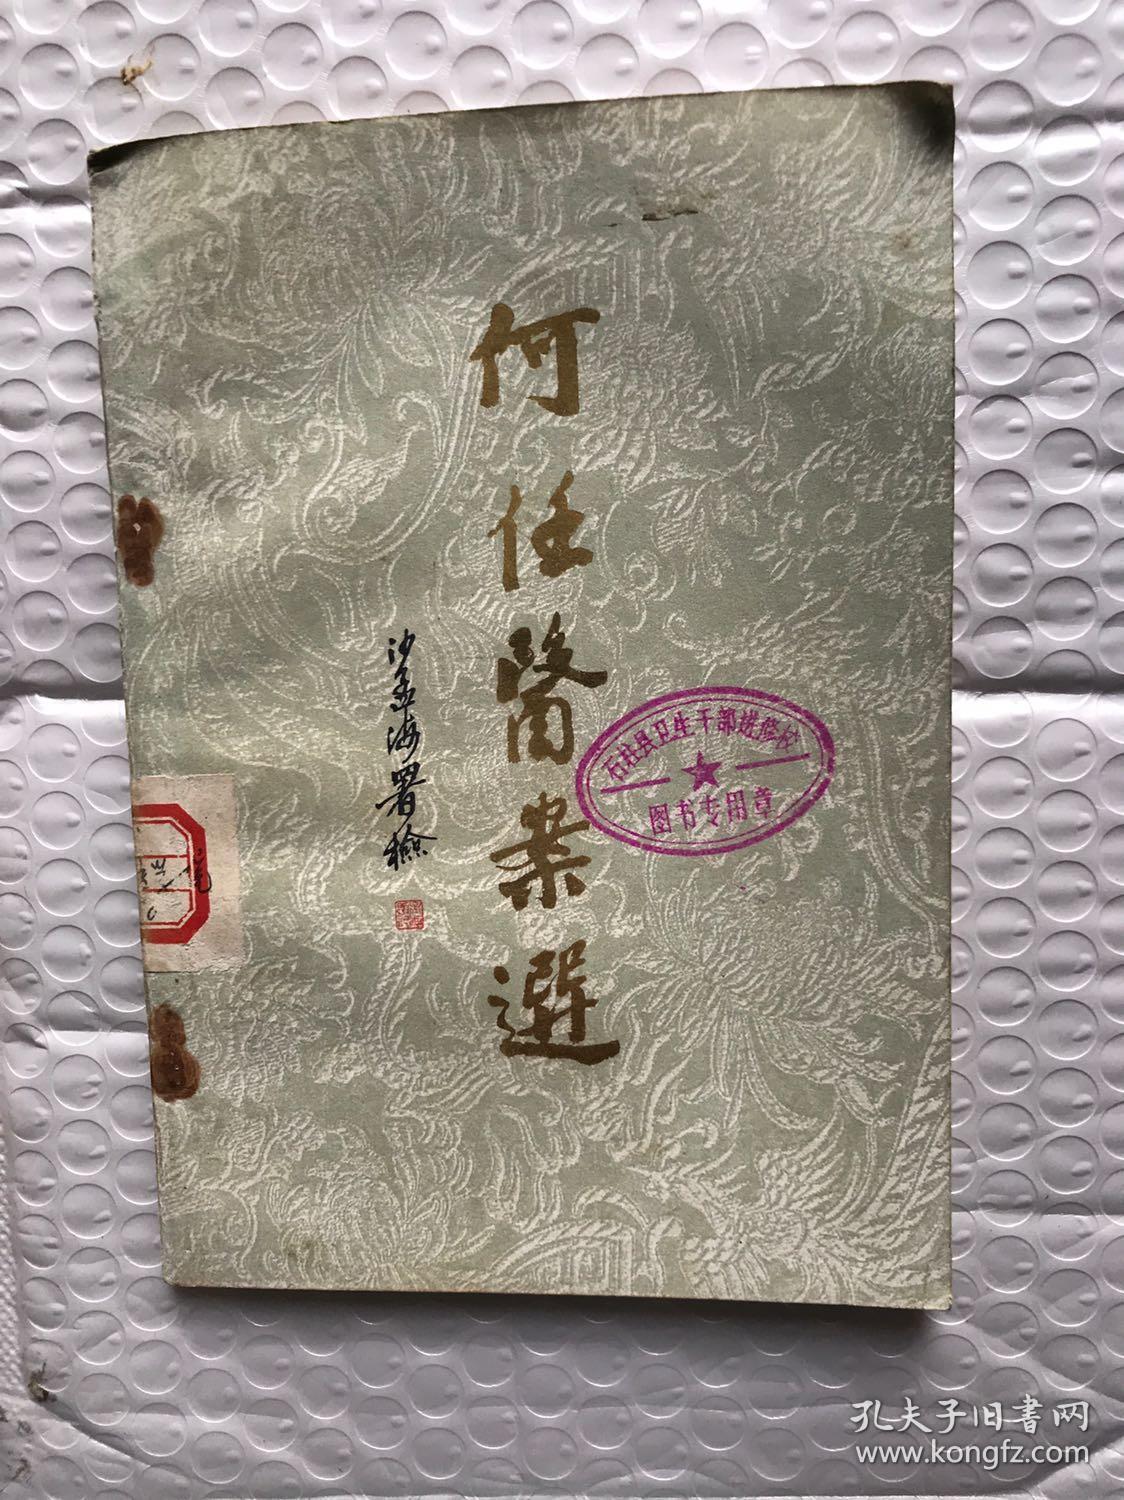 何任醫案選
沙孟海署檢
石柱县卫生干部进修校
图书专用章
孔夫子旧書网
www.kongfz.com